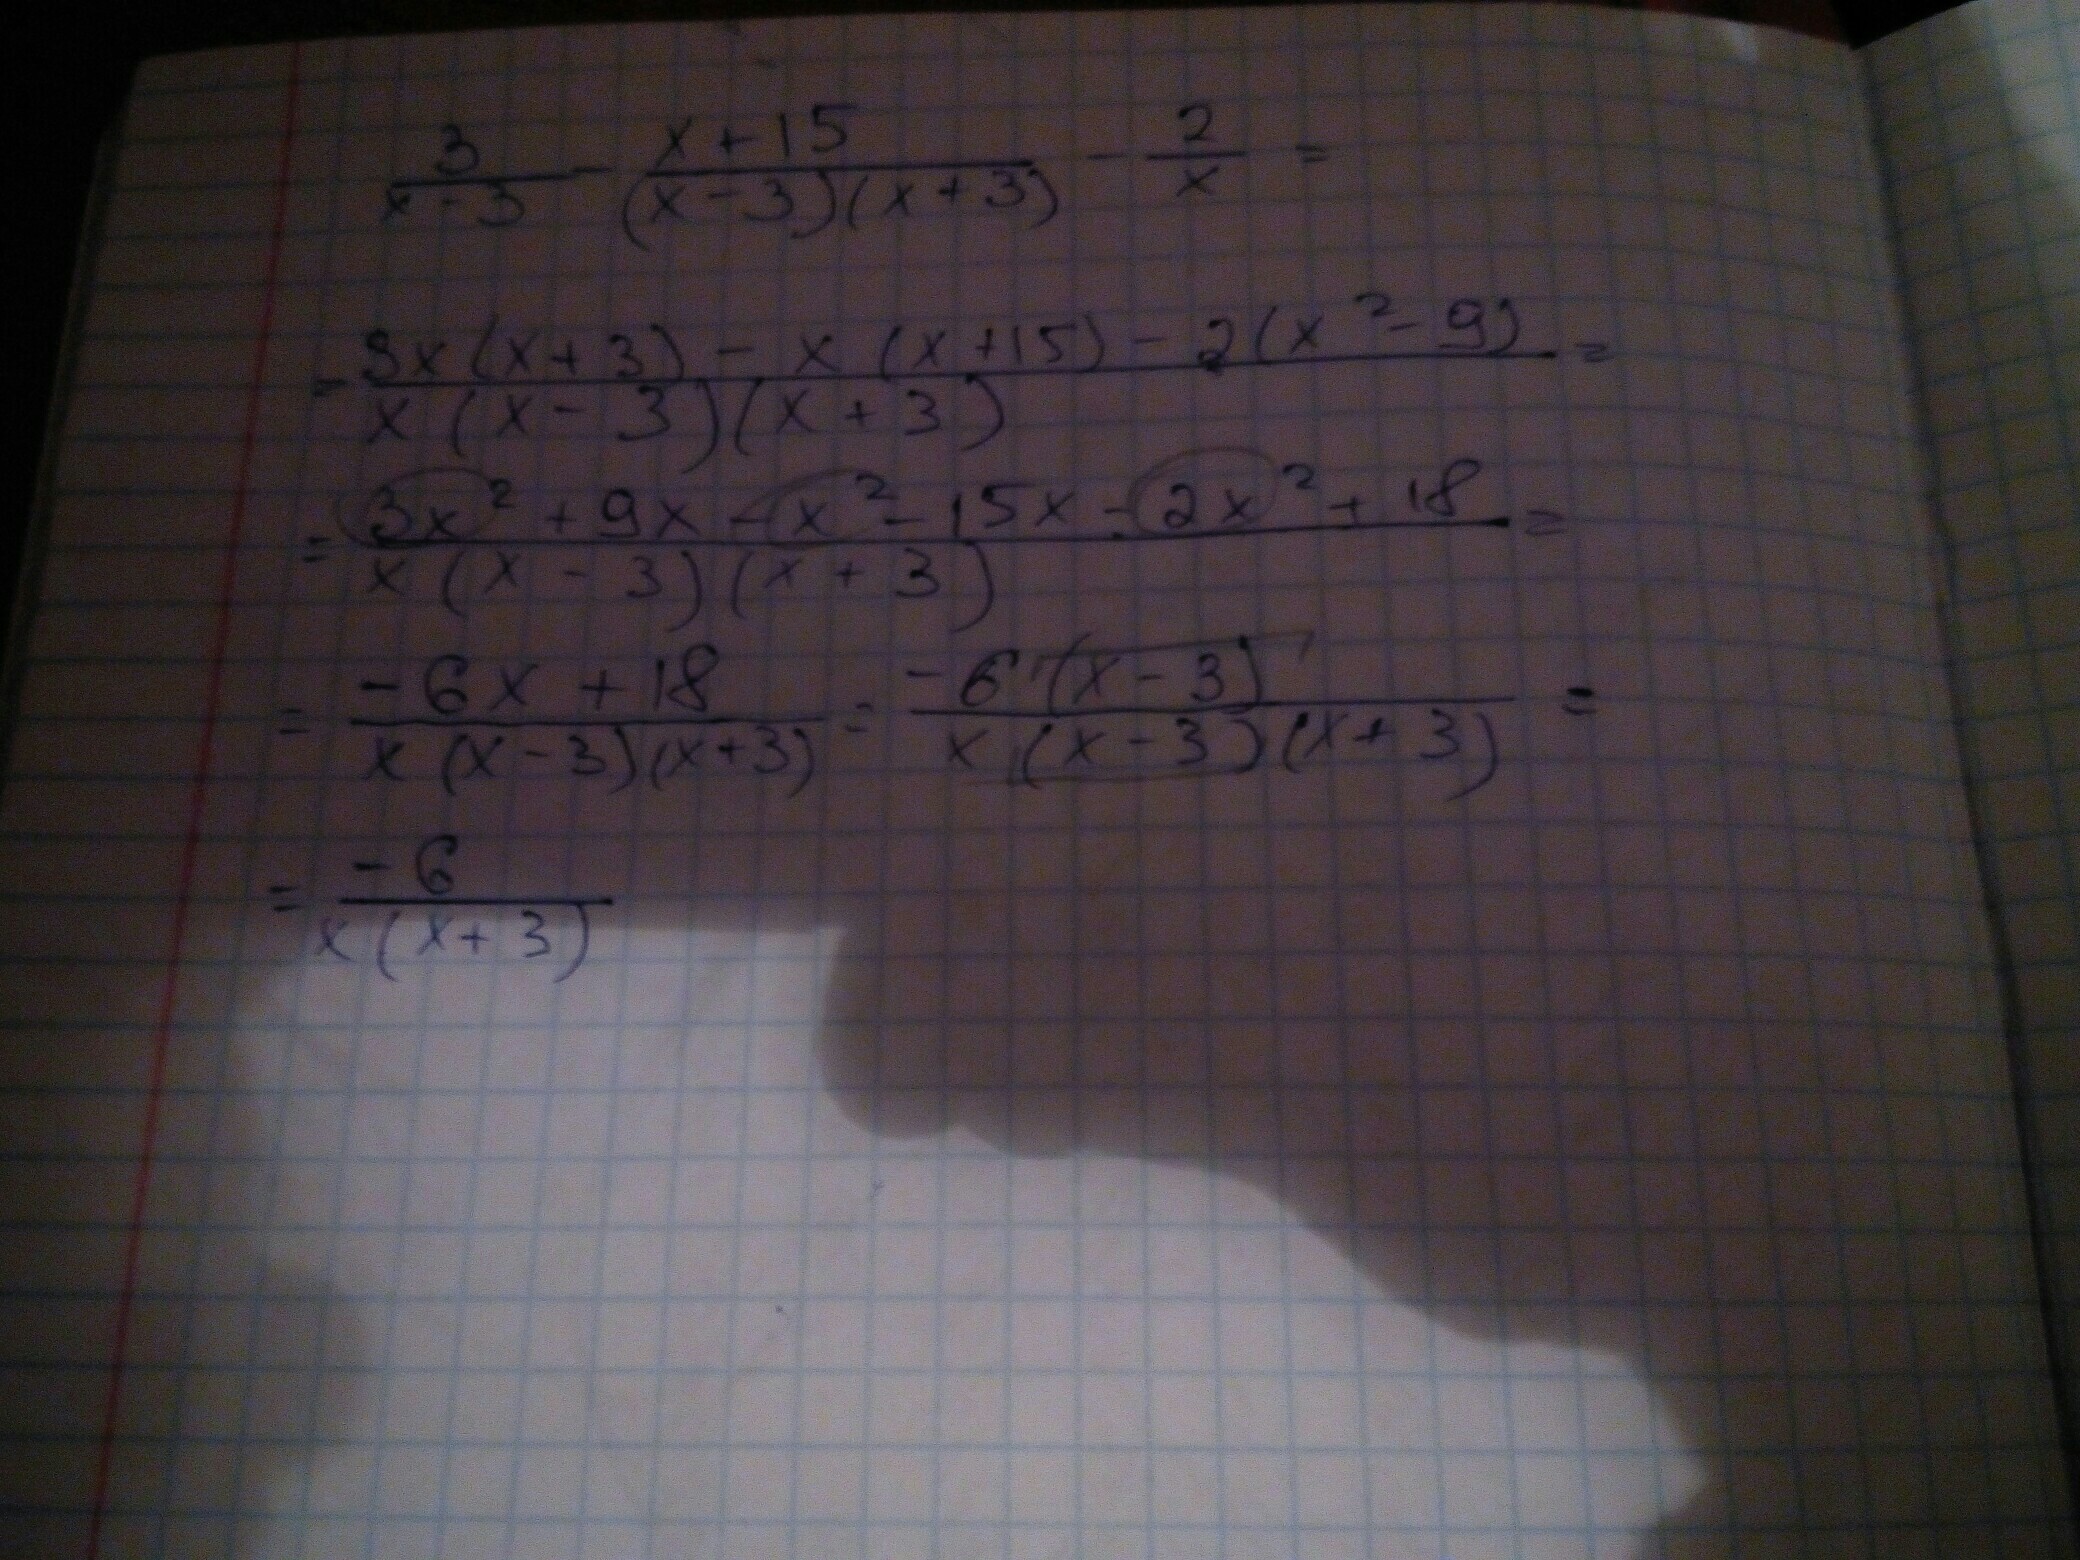 3/(x-3) - (x+15)/((x-3)(x+3)) - 2/x =
= (3x(x+3) - x(x+15) - 2(x²-9))/(x(x-3)(x+3)) =
= (3x² + 9x - x² - 15x - 2x² + 18)/(x(x-3)(x+3)) =
= (-6x + 18)/(x(x-3)(x+3)) = (-6(x-3))/(x(x-3)(x+3)) =
= (-6)/(x(x+3))